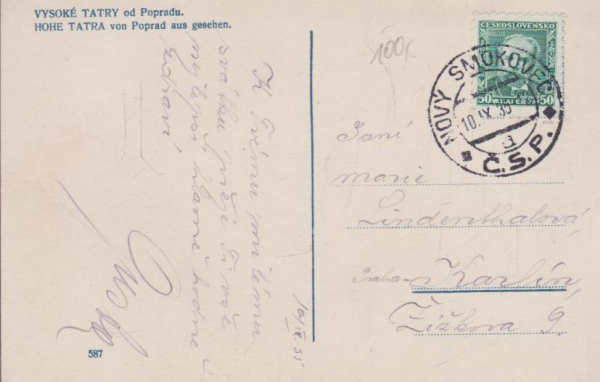 VYSOKÉ TATRY od Popradu.
HOHE TATRA von Poprad aus gesehen.
100,
ČESKOSLOVENSKO
50 50
NOVÝ SMOKOVEC
10.IX.35
a
Č.S.P.
K Tvému milému
svátku přeji Ti vše
nejlepší hlavně hodně
zdraví.
10/IX. 35
Paní
Marie
Lindenthalová
Praha-Karlín
Žižkova 9
587